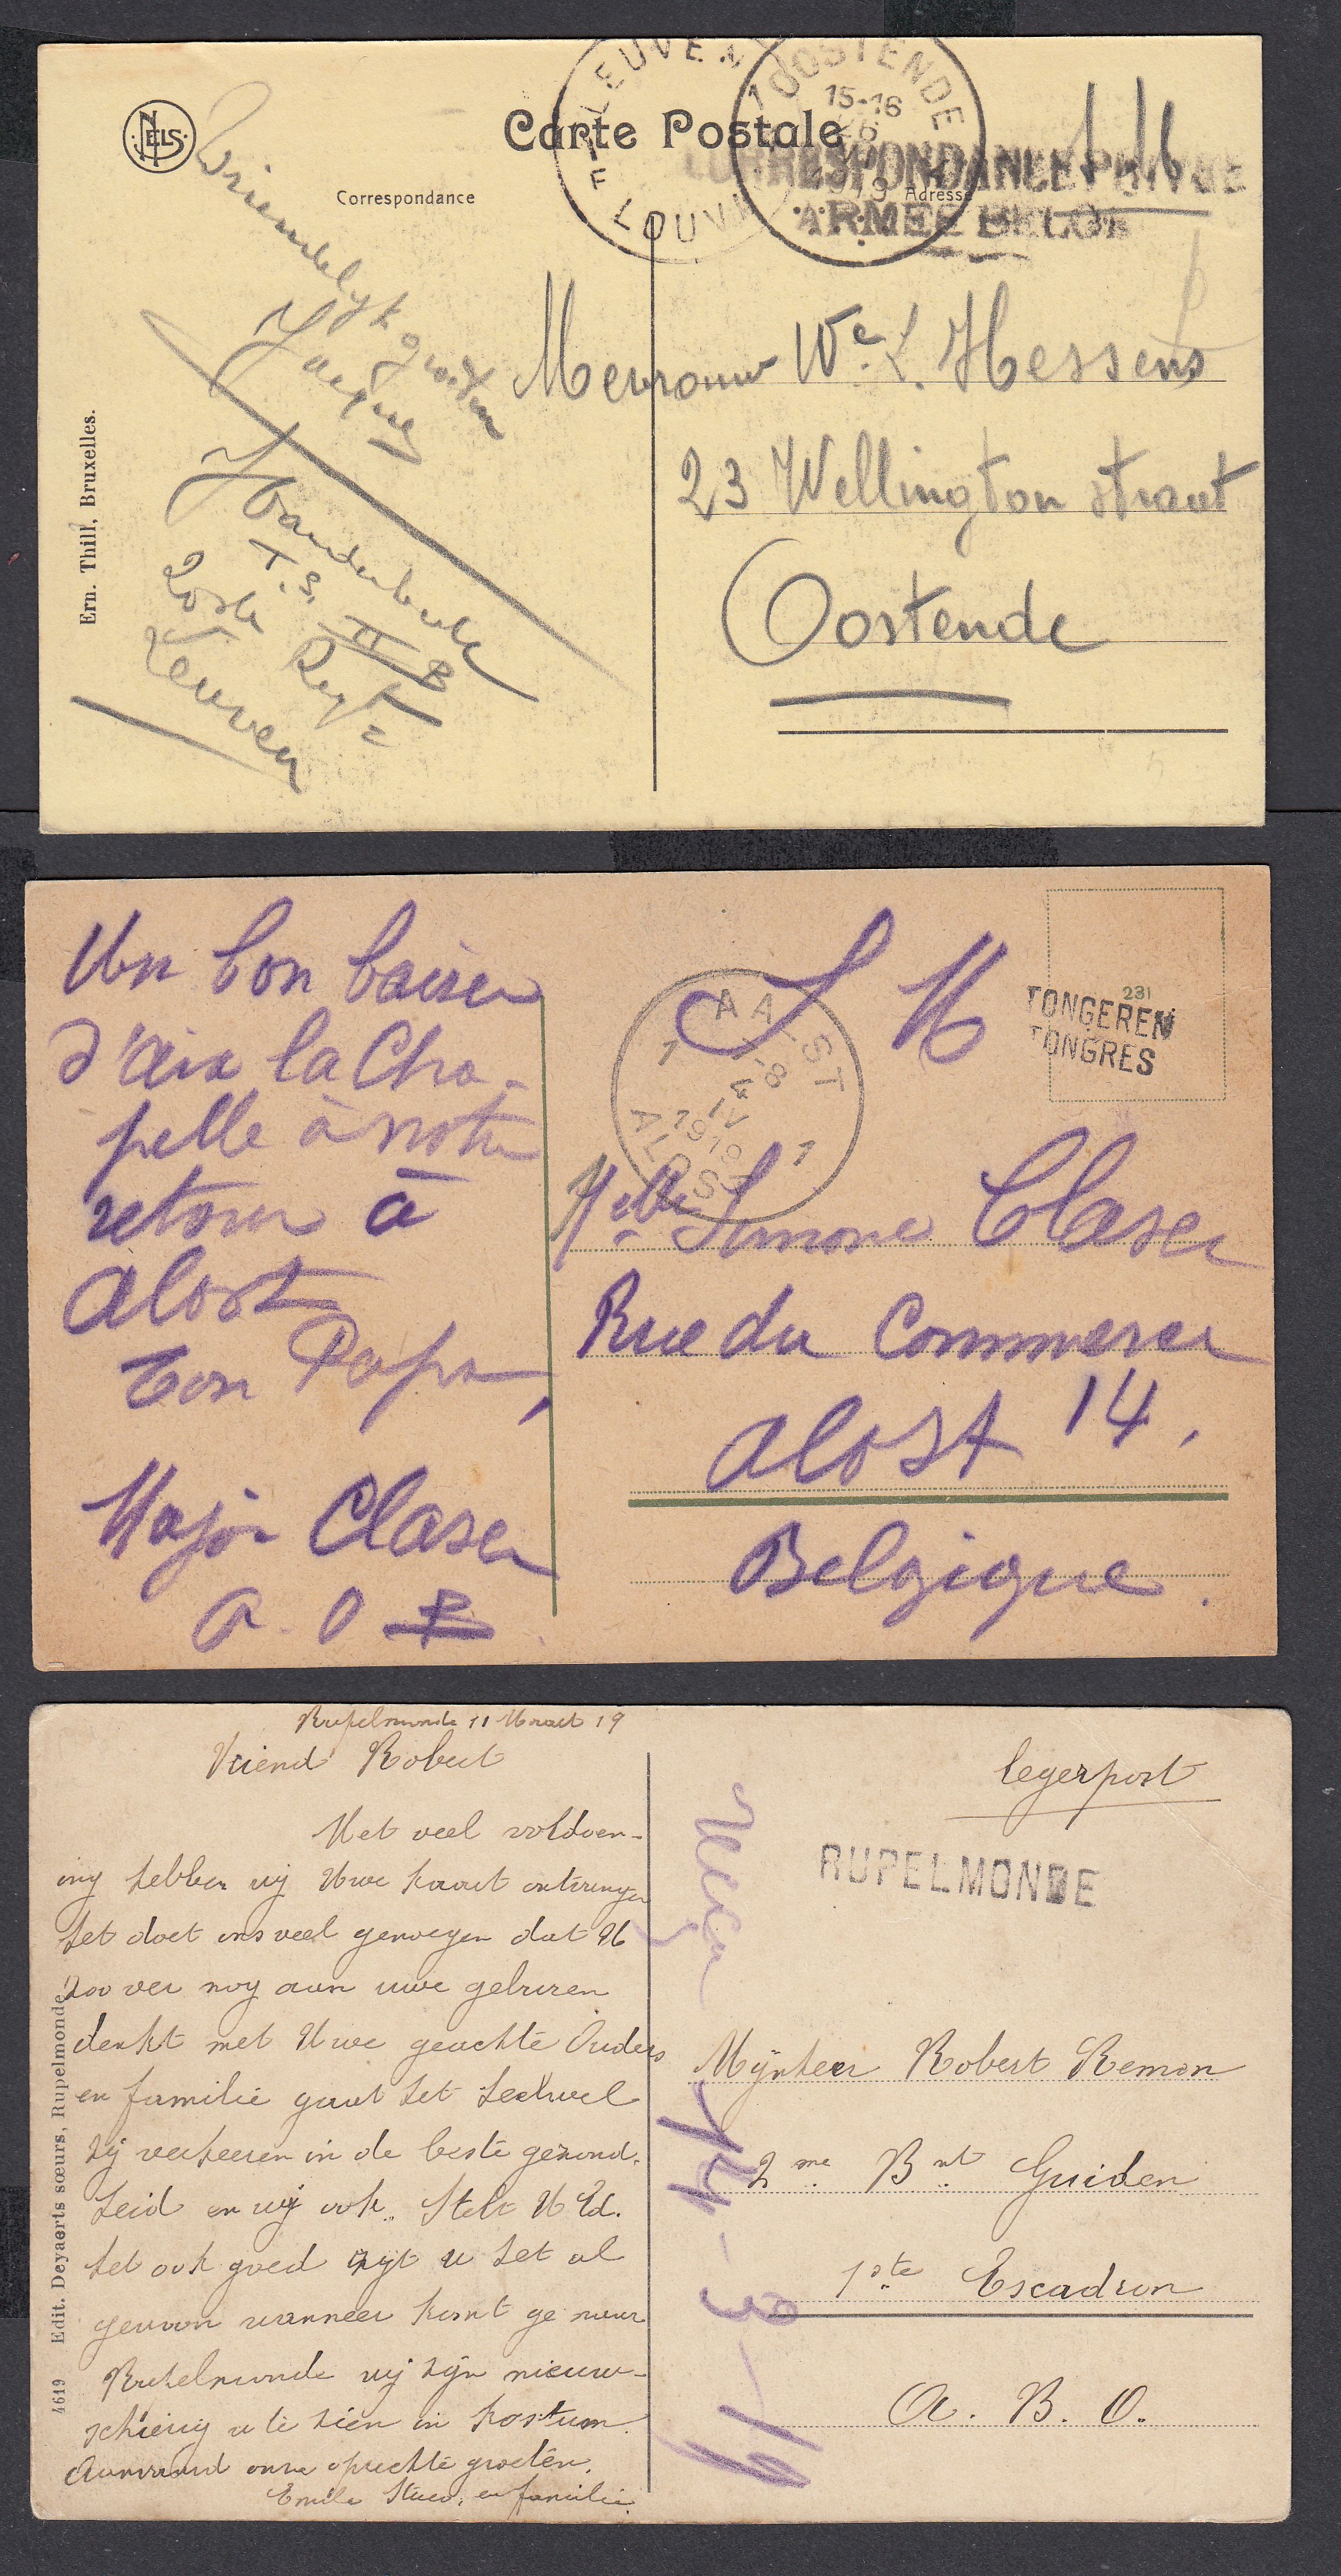 NELS
Carte Postale
Correspondance
Adresse
LEUVEN
LOUVAIN
OOSTENDE
15-16
26
1919
CORRESPONDANCE PRIVEE
ARMEE BELGE
S.M.
Vriendelijke groeten
Jacques
J Vanderbeule
T.S. II B
20ste Regt
Leuven
Mevrouw We. L. Hessens
23 Wellington straat
Oostende
Ern. Thill, Bruxelles.
Un bon baiser
d'aix la Cha-
pelle à notre
retour à
Alost
Ton Papa,
Major Claser
A. O. P
S M
AALST
1 7-8 4
IV
1919
1
ALOST
231
TONGEREN
TONGRES
Melle Simone Claser
Rue du Commerce
14,
Alost
Belgique.
Rupelmonde 11 Maart 19
Vriend Robert
Met veel voldoen-
ing hebben wij Uwe kaart ontvangen
het doet ons veel genoegen dat U
zoo ver nog aan uwe geburen
denkt met Uwe geachte Ouders
en familie gaat het heelwel
zij verkeeren in de beste gezond-
heid en wij ook. Stelt U Ed.
het ook goed zijt u het al
gewoon wanneer komt ge naar
Rupelmonde wij zijn nieuw-
schierig u te zien in kostum.
Aanvaard onze oprechte groeten.
Emile en familie.
4619 Edit. Deyaerts sœurs, Rupelmonde
legerpost
RUPELMONDE
14-3-19
Mijnheer Robert Remon
2me. Bnt. Guiden
1ste Escadron
A. B. O.